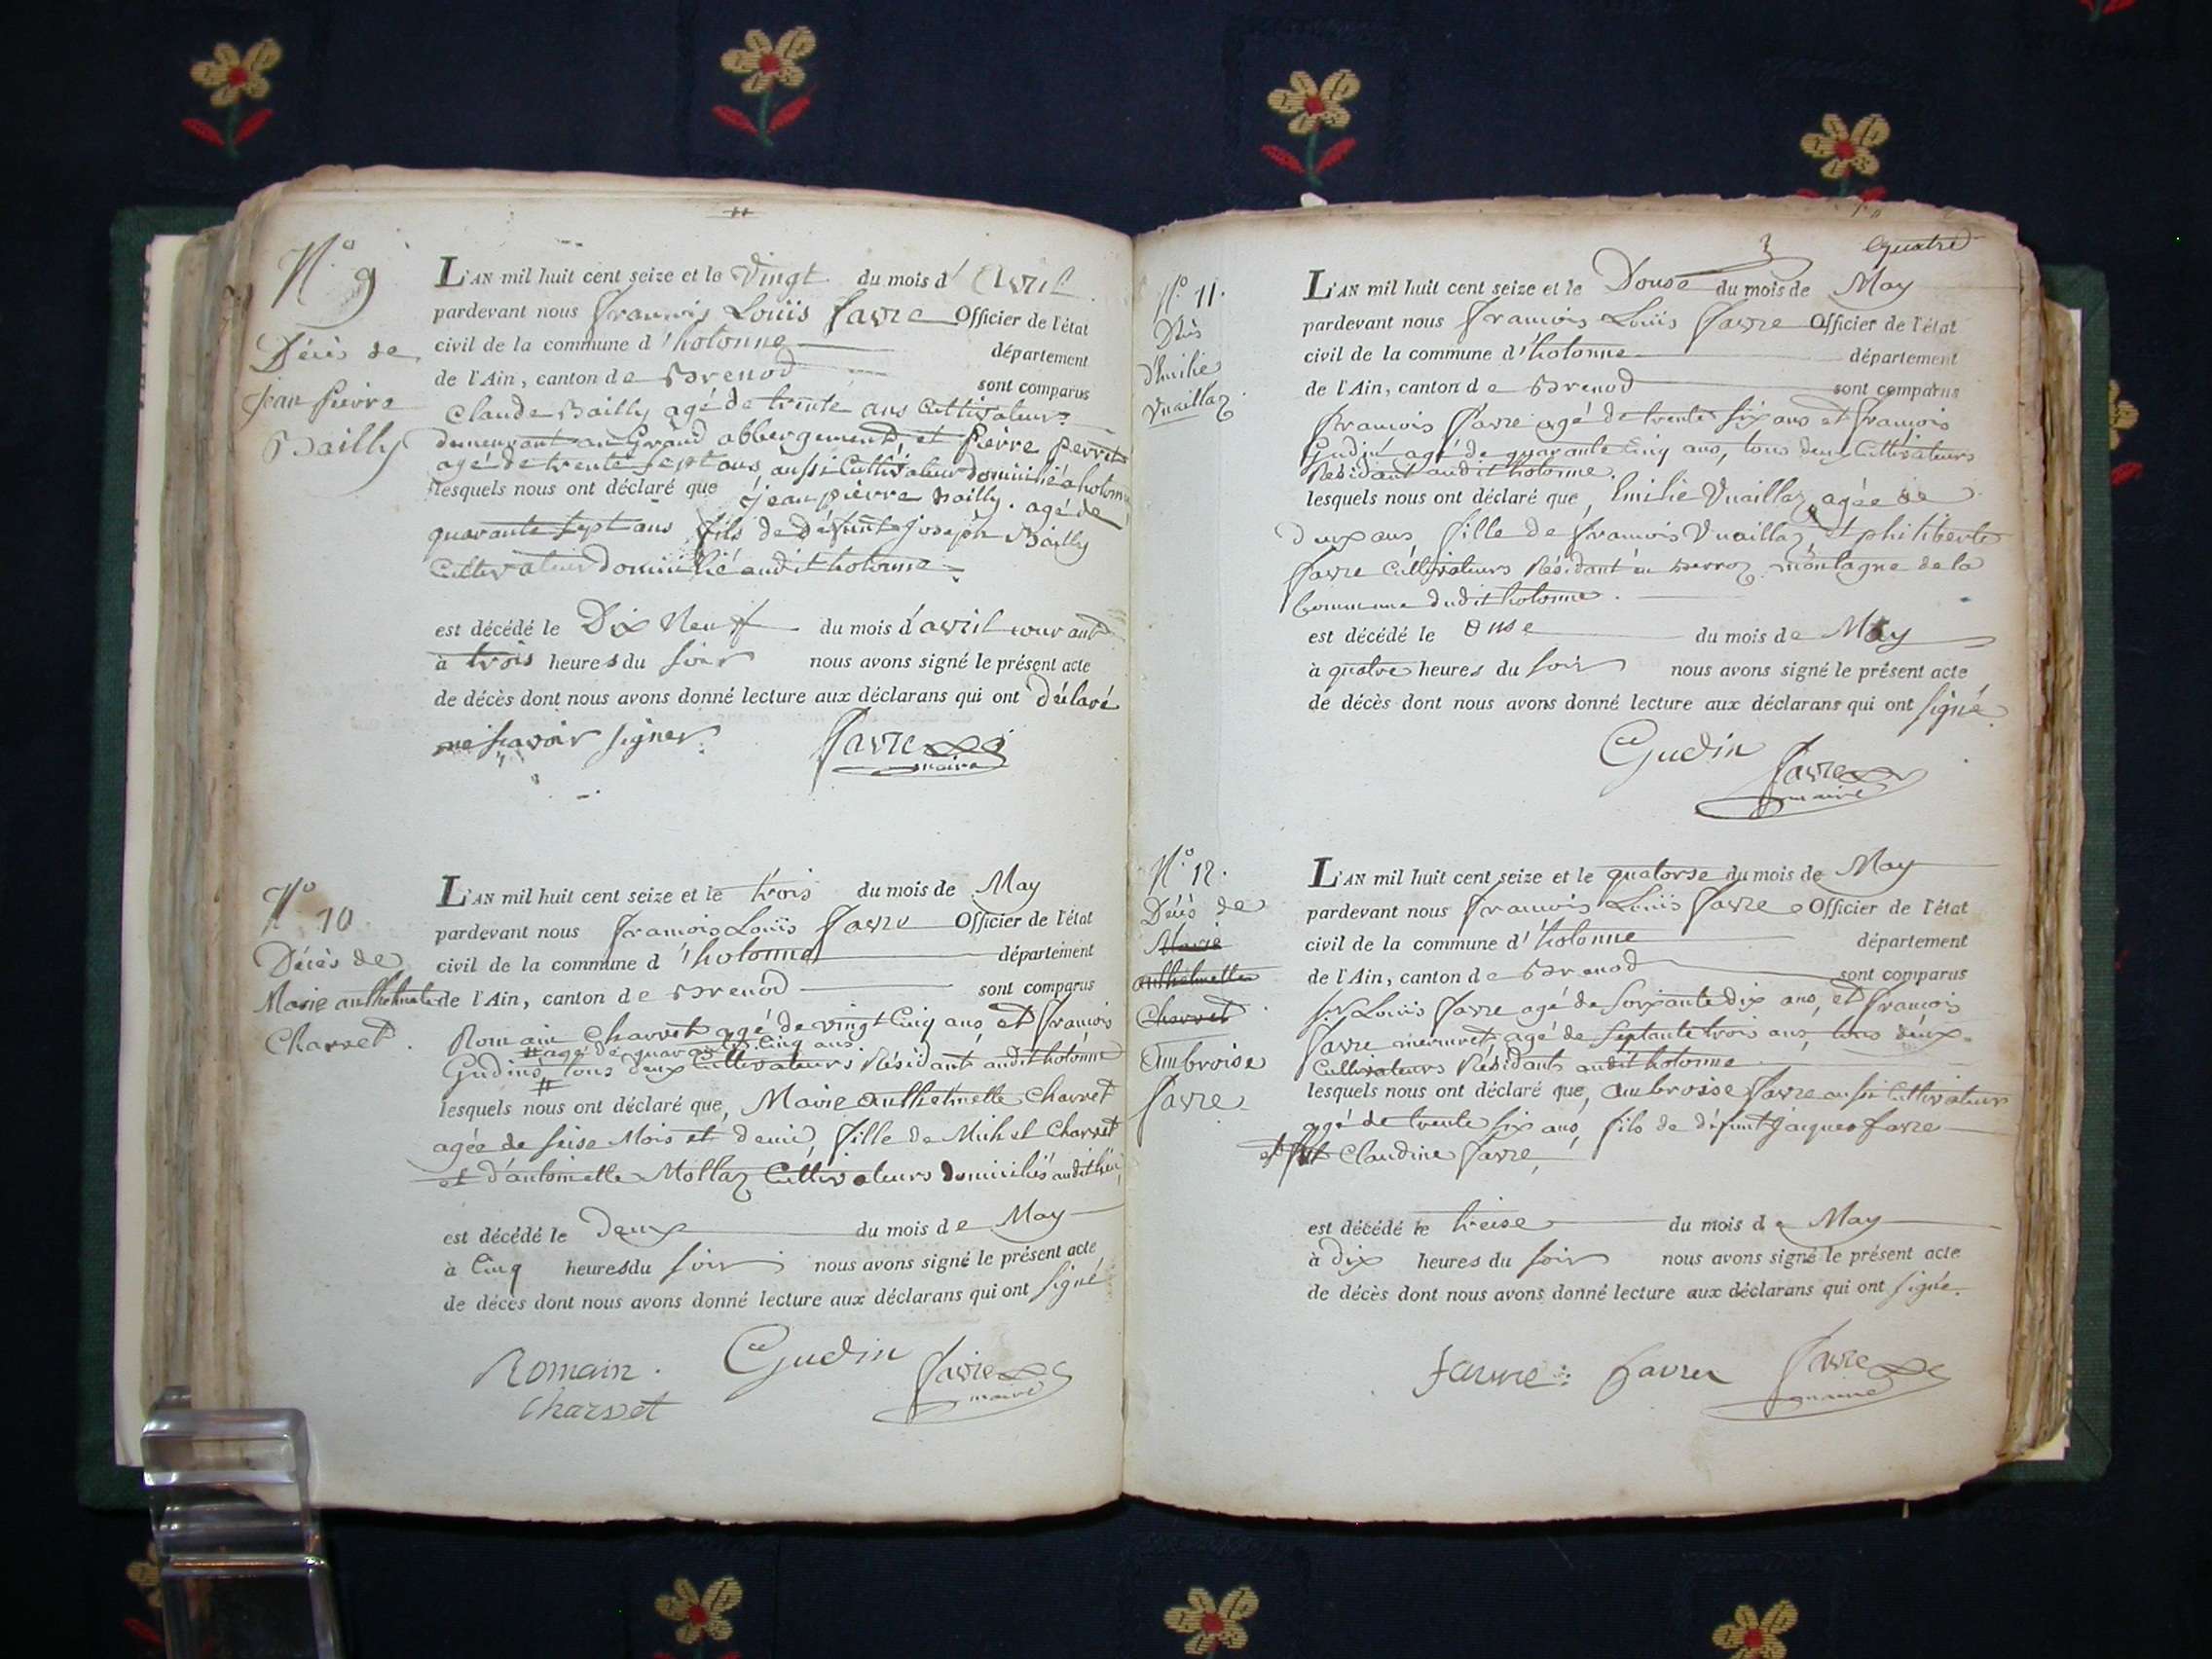 N.o 9
Décès de
jean pierre
Bailly
L'AN mil huit cent seize et le Vingt du mois d' Avril
pardevant nous francois Louis favre Officier de l'état
civil de la commune d'hotonne département
de l'Ain, canton de Brenod sont comparus
Claude Bailly agé de trente ans Cultivateur
demeurant au Grand abbergement, et pierre perret
agé de trente sept ans aussi Cultivateur domicilié a hotonne
lesquels nous ont déclaré que jean pierre Bailly. agé de
quarante sept ans fils de défunt joseph Bailly
Cultivateur domicilié audit hotonne
est décédé le Dix Neuf du mois d'avril courant
à trois heures du soir nous avons signé le présent acte
de décès dont nous avons donné lecture aux déclarans qui ont déclaré
ne scavoir signer. favre
maire
N.o 10
Décès de
Marie anthelmette
Charvet.
L'AN mil huit cent seize et le trois du mois de May
pardevant nous francois Louis favre Officier de l'état
civil de la commune d'hotonne département
de l'Ain, canton de Brenod sont comparus
Romain Charvet agé de vingt Cinq ans et francois
# agé de quarante Cinq ans
Gudin # tous deux Cultivateurs Résidant audit hotonne
lesquels nous ont déclaré que, Marie anthelmette Charvet
agée de seise Mois et demie, fille de Michel Charvet
et d'antoinette Mollaz Cultivateurs domiciliés audit lieu
est décédé le Deux du mois de May
à Cinq heures du soir nous avons signé le présent acte
de décès dont nous avons donné lecture aux déclarans qui ont signé
Romain. Gudin favre
Charvet maire
3 quatre
N.o 11.
Décès
d'Emilie
Vuaillaz
L'AN mil huit cent seize et le Douse du mois de May
pardevant nous francois Louis favre Officier de l'état
civil de la commune d'hotonne département
de l'Ain, canton de Brenod sont comparus
francois favre agé de trente six ans et francois
Gudin agé de quarante Cinq ans, tous deux Cultivateurs
Résidant audit hotonne.
lesquels nous ont déclaré que, Emilie Vuaillaz, agée de
deux ans, fille de francois Vuaillaz, et philiberte
favre Cultivateurs Résidant en montagne de la
Commune dudit hotonne.
est décédé le onse du mois de May
à quatre heures du soir nous avons signé le présent acte
de décès dont nous avons donné lecture aux déclarans qui ont signé.
Gudin favre
maire
N.o 12.
Décès de
Marie
anthelmette
Charvet
Ambroise
favre
L'AN mil huit cent seize et le quatorse du mois de May
pardevant nous francois Louis favre Officier de l'état
civil de la commune d'hotonne département
de l'Ain, canton de Brenod sont comparus
Louis favre agé de soixante dix ans, et francois
favre mermet, agé de septante trois ans, tous deux
Cultivateurs Résidants audit hotonne
lesquels nous ont déclaré que, ambroise favre aussi Cultivateur
agé de trente six ans, fils de défunt jacques favre
et Claudine favre,
est décédé le treise du mois de May
à dix heures du soir nous avons signé le présent acte
de décès dont nous avons donné lecture aux déclarans qui ont signé.
favre favre
maire